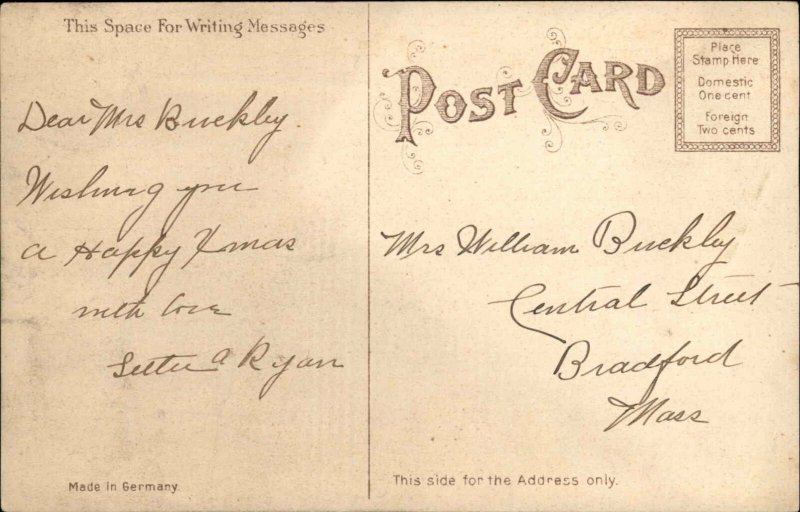 This Space For Writing Messages
Dear Mrs Buckley.
Wishing you
a Happy Xmas
with love
A Ryan
Made in Germany.
POST CARD
Place
Stamp Here
Domestic
One cent
Foreign
Two cents
Mrs William Buckley
Central Street
Bradford
Mass
This side for the Address only.